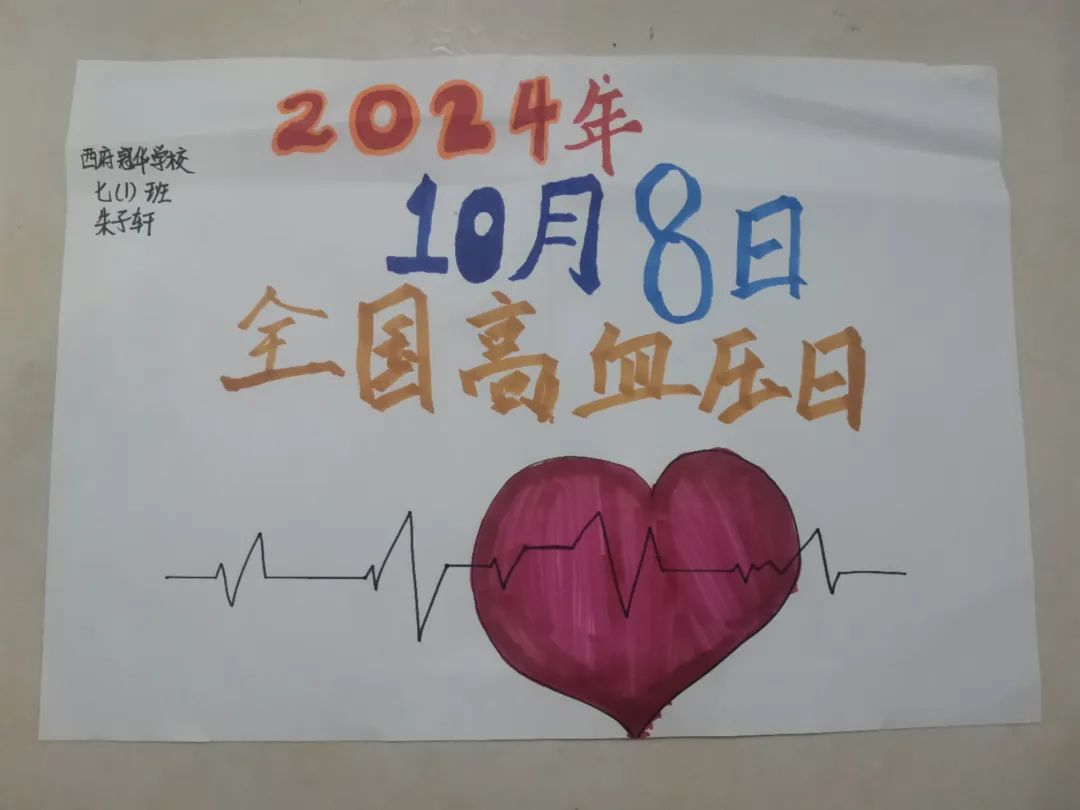 2024年
西府冠华学校
七(1)班
朱子轩
10月8日
全国高血压日